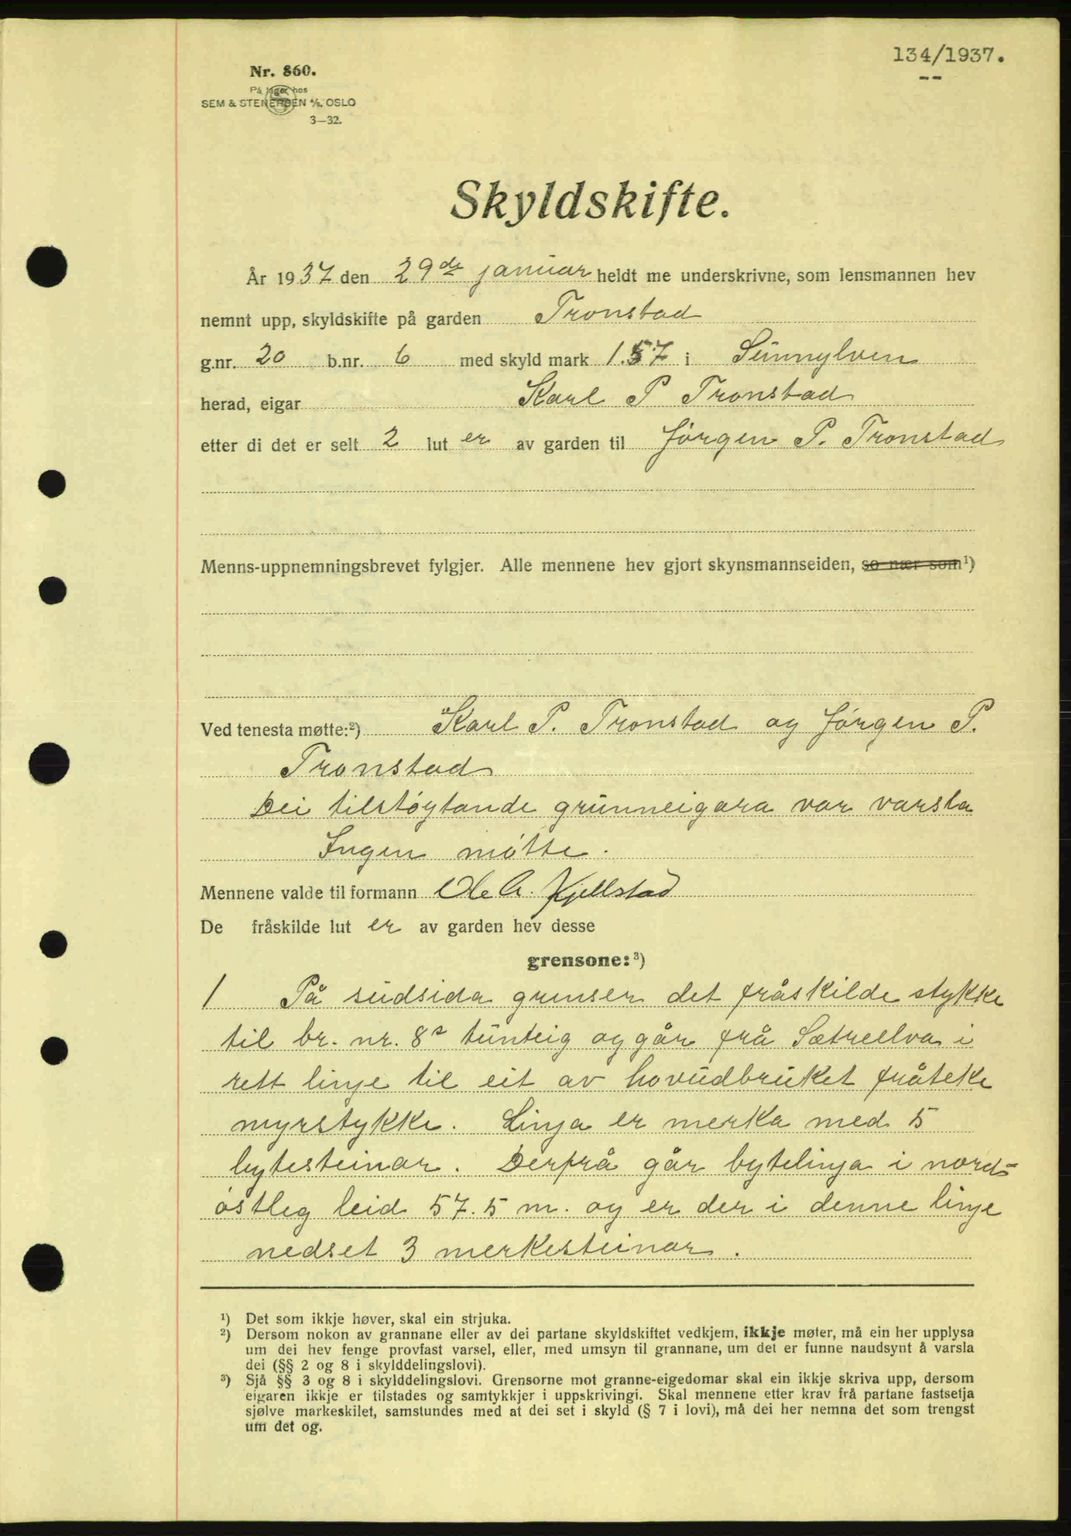 134/1937.
Nr. 860.
På lager hos
SEM & STENERSEN A/S, OSLO
3—32.
Skyldskifte.
År 1937 den 29de januar heldt me underskrivne, som lensmannen hev
nemnt upp, skyldskifte på garden Tronstad
g.nr. 20 b.nr. 6 med skyld mark 1.57 i Sunnylven
herad, eigar Karl P Tronstad
etter di det er selt 2 lut er av garden til Jørgen P. Tronstad
Menns-uppnemningsbrevet fylgjer. Alle mennene hev gjort skynsmannseiden, so nær som¹)
Ved tenesta møtte:²) Karl P. Tronstad og Jørgen P.
Tronstad
Dei tilstøytande grunneigara var varsla
Ingen møtte.
Mennene valde til formann Ole A. Kjellstad
De fråskilde lut er av garden hev desse
grensone:³)
1 På sudsida grenser det fråskilde stykke
til br. nr. 8s tunteig og går frå Sætreelva i
rett linje til eit av hovudbruket fråteke
myrstykke. Linja er merka med 5
bytesteinar. Derfrå går bytelinja i nord-
østleg leid 57.5 m. og er der i denne linje
nedset 3 merkesteinar.
¹) Det som ikkje høver, skal ein strjuka.
²) Dersom nokon av grannane eller av dei partane skyldskiftet vedkjem, ikkje møter, må ein her upplysa
um dei hev fenge provfast varsel, eller, med umsyn til grannane, um det er funne naudsynt å varsla
dei (§§ 2 og 8 i skylddelingslovi).
³) Sjå §§ 3 og 8 i skylddelingslovi. Grensorne mot granne-eigedomar skal ein ikkje skriva upp, dersom
eigaren ikkje er tilstades og samtykkjer i uppskrivingi. Skal mennene etter krav frå partane fastsetja
sjølve markeskilet, samstundes med at dei set i skyld (§ 7 i lovi), må dei her nemna det som trengst
um det og.